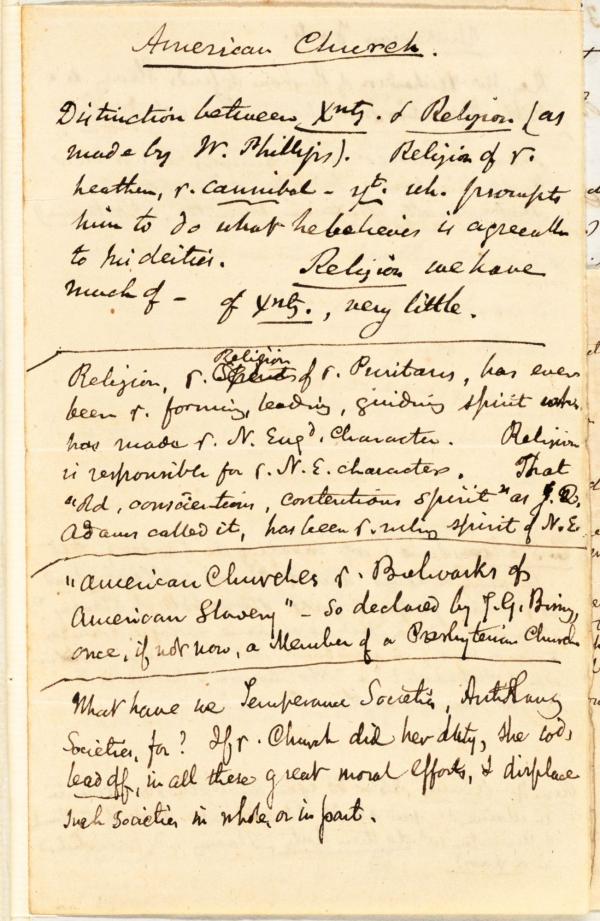 American Church.
Distinction between Xnty. & Religion (as
made by W. Phillips). Religion of r.
heathen, r. cannibal - yt. wh. prompts
him to do what he believes is agreeable
to his deities. Religion we have
much of - of Xnty., very little.
Religion
Religion, r. of r. Puritans, has ever
been r. forming, leading, guiding spirit wh.
has made r. N. Engd. Character. Religion
is responsible for r. N. E. character. That
"old, conscientious, contentious spirit" as J. Q.
Adams called it, has been r. ruling spirit of N. E.
"American Churches r. Bulwarks of
American Slavery" - so declared by J. G. Birney,
once, if not now, a Member of a Presbyterian Church
What have we Temperance Societies, AntiSlavy
Societies, for? If r. Church did her duty, she wd.
lead off, in all these great moral efforts, & displace
such societies in whole, or in part.